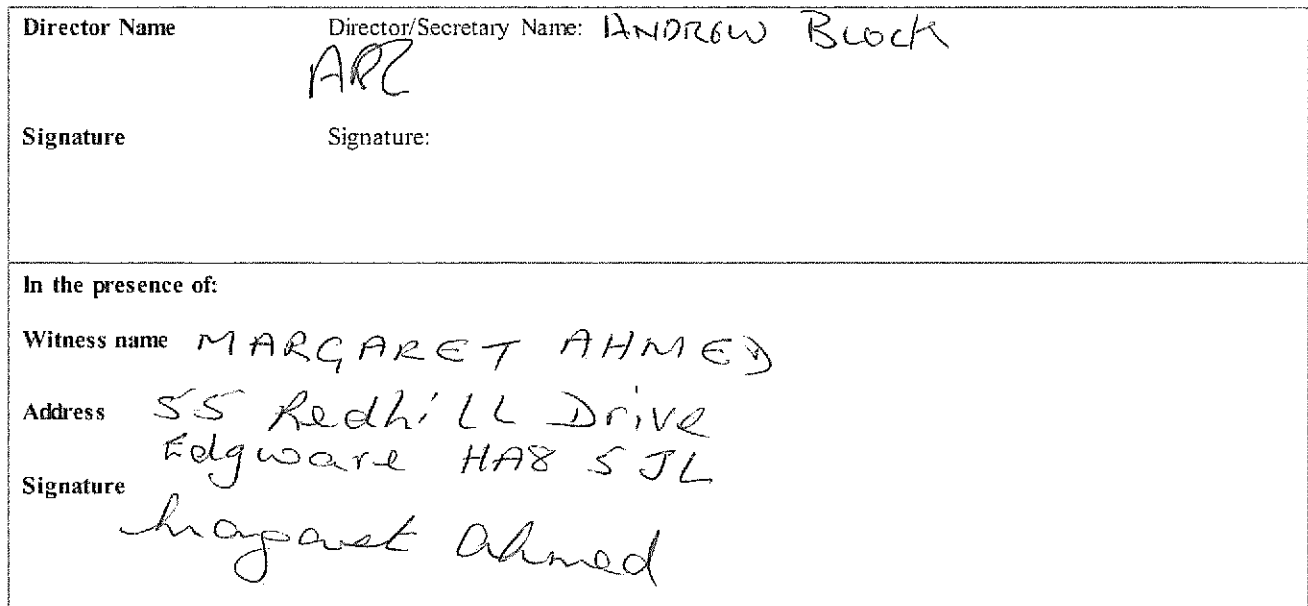 Director Name Director/Secretary Name: ANDREW BLOCK
Signature Signature:
In the presence of:
Witness name MARGARET AHMED
Address 55 Redhill Drive
Edgware HA8 5JL
Signature
Margaret Ahmed